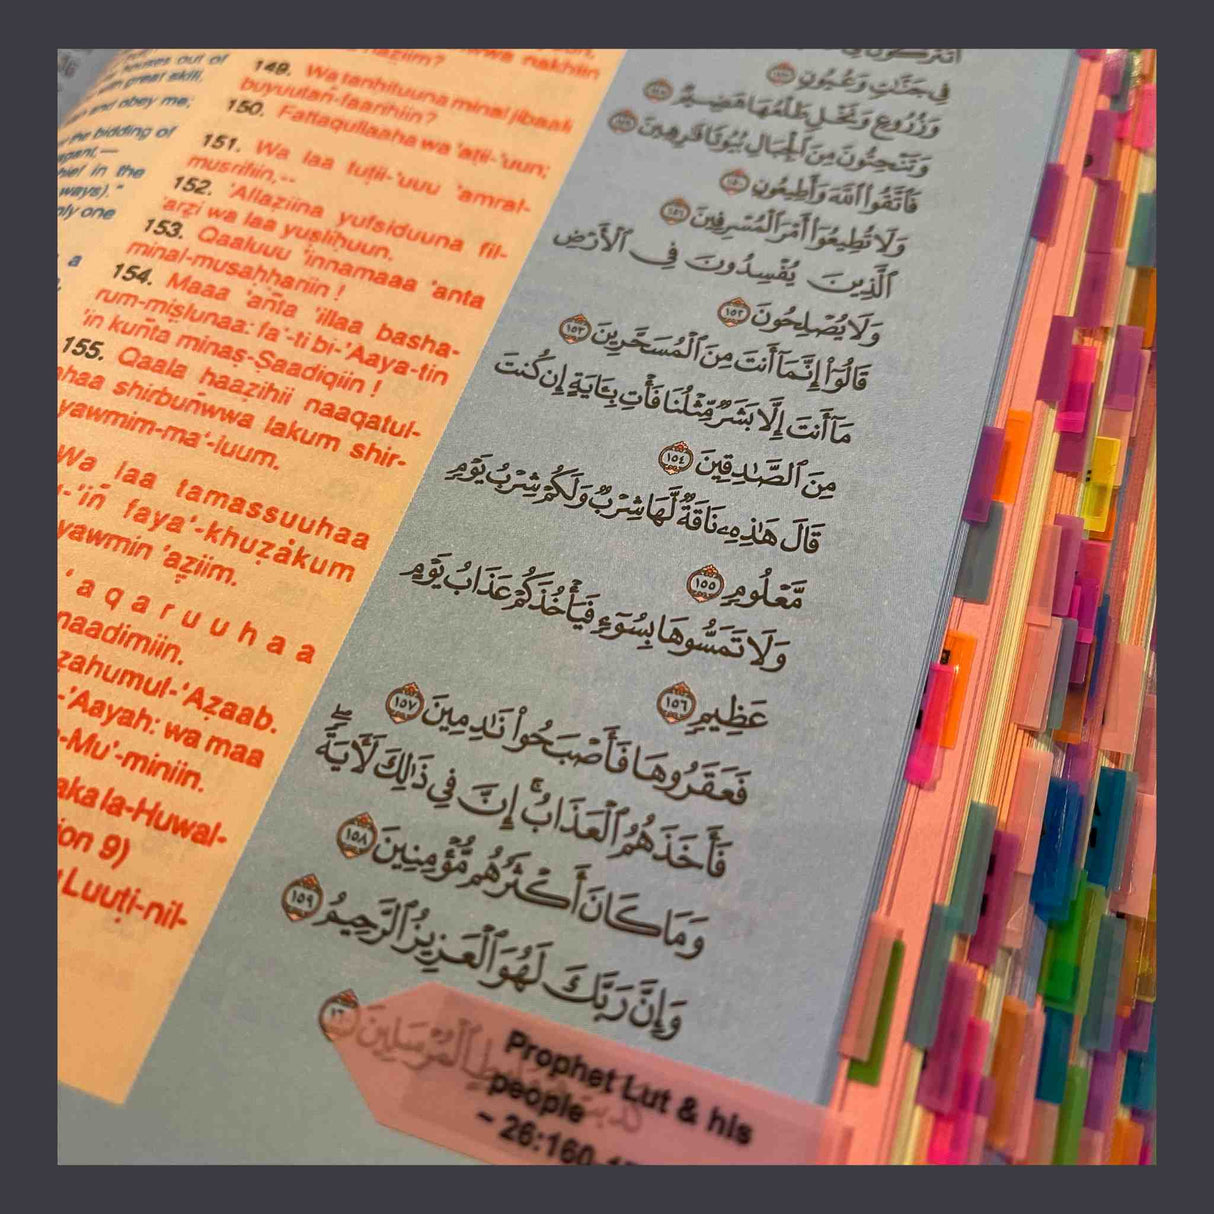 houses out of
with great skill.
and obey me;
the bidding of
chief in the
ways)."
only one
a
nakhiin
149. Wa tanhituuna minal jibaali
buyuutañ-faarihiin?
150. Fattaqullaaha wa 'aṭii-'uun;
151. Wa laa tuṭii-'uuu 'amral-
musrifiin,--
152. 'Allaẓiina yufsiduuna fil-
'arẓi wa laa yuṣliḥuun.
153. Qaaluuu 'innamaaa 'anta
minal-musaḥḥariin !
154. Maaa 'añta 'illaa basha-
rum-miṣlunaa: fa'-ti bi-'Aaya-tin
'in kuñta minaṣ-Ṣaadiqiin !
155. Qaala haaẓihii naaqatul-
haa shirbuñwwa lakum shir-
yawmim-ma'-luum.
Wa laa tamassuuhaa
-'iñ faya'-khuẓåkum
yawmin 'aẓiim.
'aqaruuhaa
naadimiin.
zahumul-'Aẓaab.
-'Aayah: wa maa
-Mu'-miniin.
aka la-Huwal-
ion 9)
Luuṭi-nil-
فِي جَنَّاتٍ وَعُيُونٍ ١٤٧
وَزُرُوعٍ وَنَخْلٍ طَلْعُهَا هَضِيمٌ ١٤٨
وَتَنْحِتُونَ مِنَ ٱلْجِبَالِ بُيُوتًا فَٰرِهِينَ ١٤٩
فَٱتَّقُوا۟ ٱللَّهَ وَأَطِيعُونِ ١٥٠
وَلَا تُطِيعُوٓا۟ أَمْرَ ٱلْمُسْرِفِينَ ١٥١
ٱلَّذِينَ يُفْسِدُونَ فِى ٱلْأَرْضِ
وَلَا يُصْلِحُونَ ١٥٢
قَالُوٓا۟ إِنَّمَآ أَنتَ مِنَ ٱلْمُسَحَّرِينَ ١٥٣
مَآ أَنتَ إِلَّا بَشَرٌ مِّثْلُنَا فَأْتِ بِـَٔايَةٍ إِن كُنتَ
مِنَ ٱلصَّٰدِقِينَ ١٥٤
قَالَ هَٰذِهِۦ نَاقَةٌ لَّهَا شِرْبٌ وَلَكُمْ شِرْبُ يَوْمٍ
مَّعْلُومٍ ١٥٥
وَلَا تَمَسُّوهَا بِسُوٓءٍ فَيَأْخُذَكُمْ عَذَابُ يَوْمٍ
عَظِيمٍ ١٥٦
فَعَقَرُوهَا فَأَصْبَحُوا۟ نَٰدِمِينَ ١٥٧
فَأَخَذَهُمُ ٱلْعَذَابُ ۗ إِنَّ فِى ذَٰلِكَ لَـَٔايَةً ۖ
وَمَا كَانَ أَكْثَرُهُم مُّؤْمِنِينَ ١٥٨
وَإِنَّ رَبَّكَ لَهُوَ ٱلْعَزِيزُ ٱلرَّحِيمُ ١٥٩
ٱلْمُرْسَلِينَ ١٦٠
Prophet Lut & his
people
~ 26:160